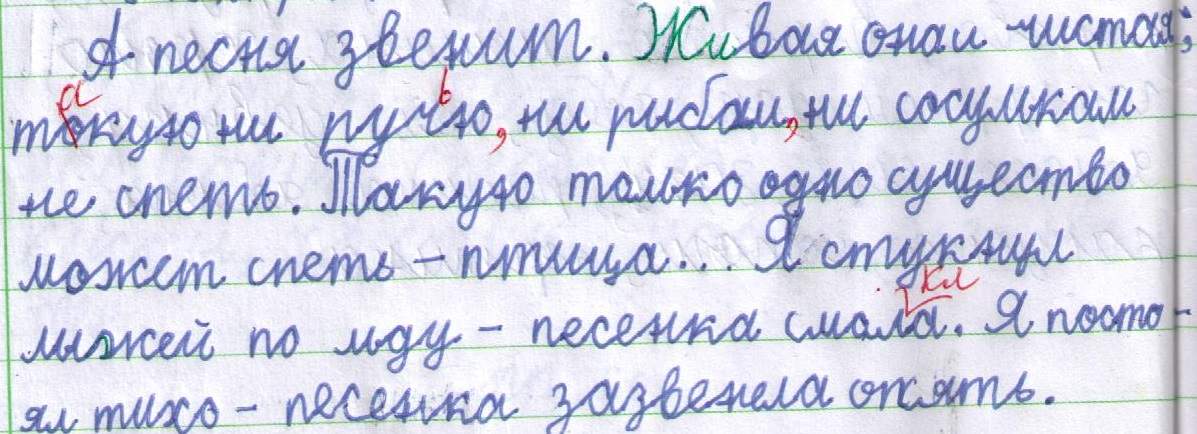 А песня звенит. Живая она и чистая;
такую ни ручью, ни рыбам, ни сосулькам
не спеть. Такую только одно существо
может спеть – птица... Я стукнул
лыжей по льду – песенка смолкла. Я посто-
ял тихо – песенка зазвенела опять.